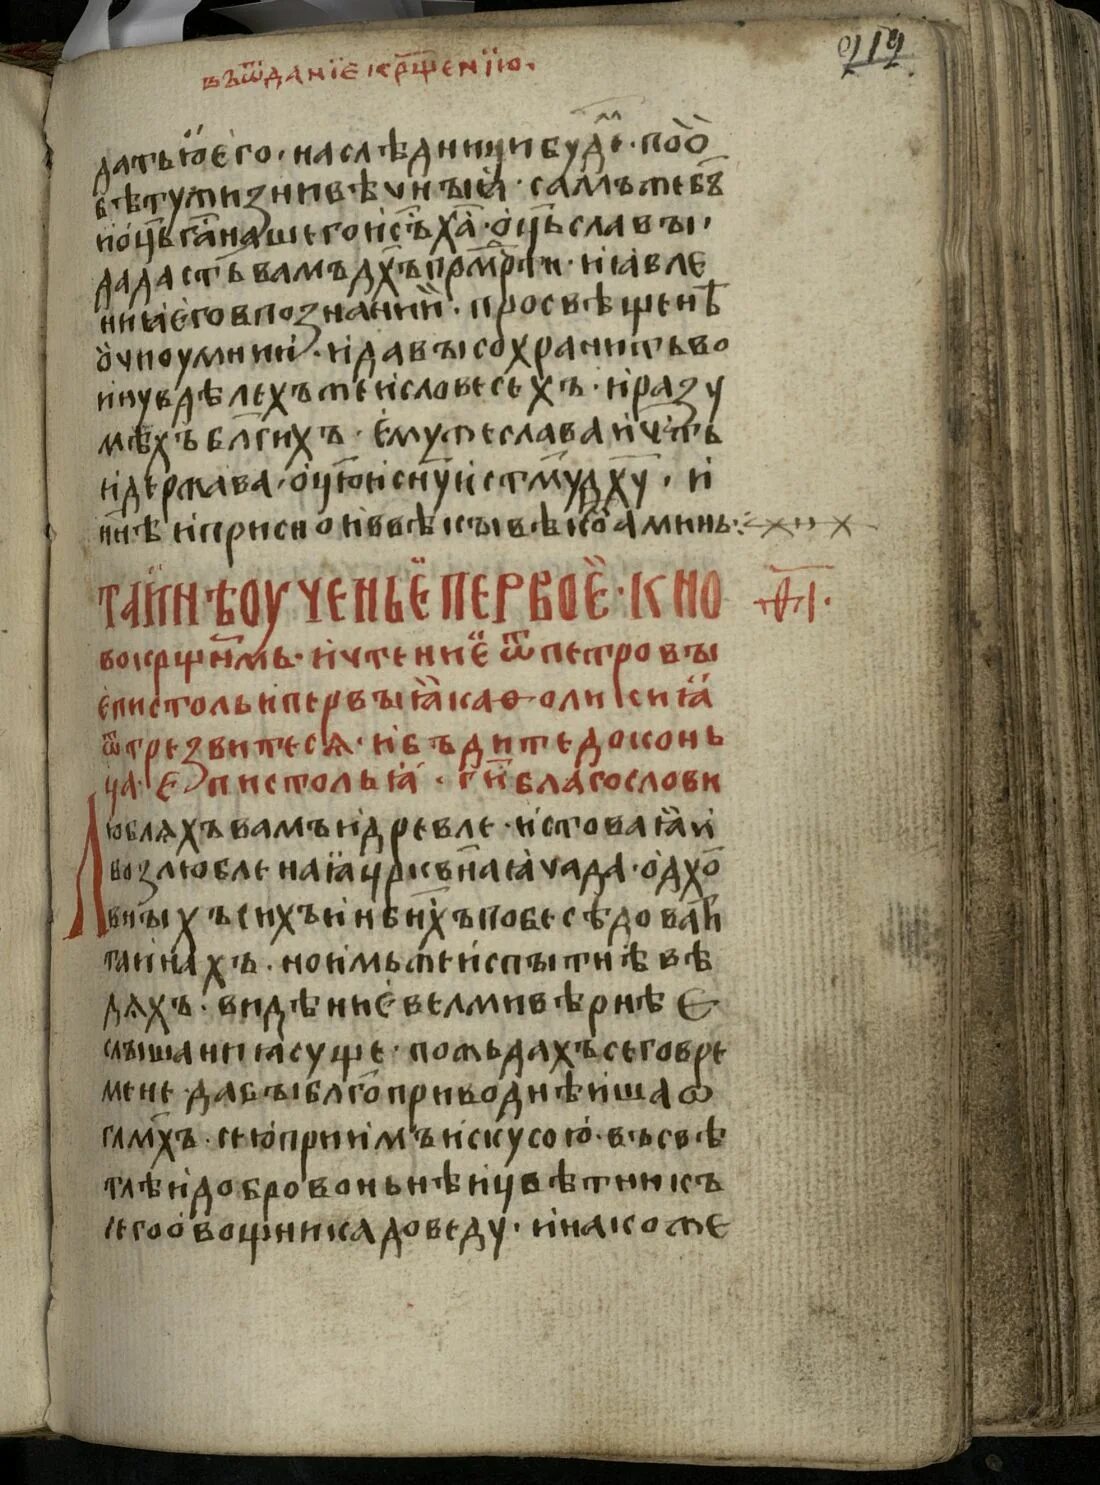 въѿданїе крⷳ҇щенїю.
219
датьюего· наслѣдницибудⷨе· поѻ
вѣтужизнивѣчныѧ· самъжебъ҃
иѻц҃ьгⷭ҇анашегоїс҃ъх҃а· ѻц҃ьславы·
дадастьвамъдх҃ъпрмⷣрти· иꙗвле
ниꙗеговпознании҆· просвѣщенѣ
ѻчиоумнии· идавысохранитьво
инувдѣлехъжеисловесехъ· иразу
мѣхъблг҃ихъ· емужеславаичⷭ҇ть
идержава· ѻц҃юисн҃уист҃мудх҃у· и
нн҃ѣиприсноиввѣкывѣкоⷨаминь·
таинѣоученьепервое· кно
н҃і·
вокрщн҃мь· ичтение ѿпетровы
епистольипервыꙗкаѳоликиꙗ
ѿтрезвитесѧ· ибъдитедоконь
ца· епистольꙗ· гⷭ҇иблагослови
Люблѧхъвамъидревле· истоваꙗи
возлюбленаꙗцрк҃внаꙗчада· ѻдх҃о
вныхъсихъинбн҃хъпобесѣдоваⷮи
таинахъ· ноимьжеиспытнѣвѣ
дѧхъ· видѣниевелмивѣрнѣе
слышаниꙗсуще· пожьдахъсеговре
мене· дабыблг҃оприводнѣишаѡ
глм҃хъ· сеюприимъискусою· въсвѣ
тлѣидобровоньнѣицвѣтникъ
сегоѻвощникадоведу· инакоже